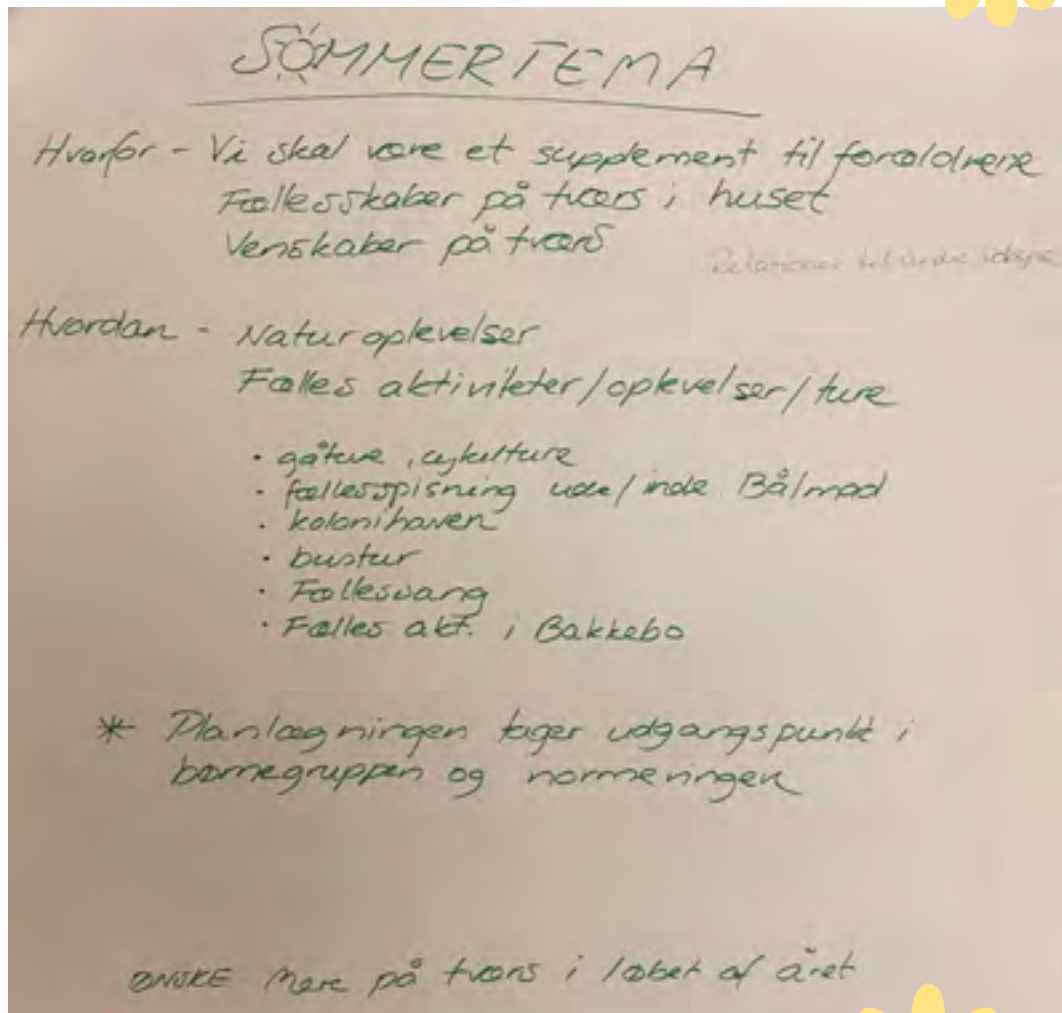 SOMMERTEMA
Hvorfor - Vi skal være et supplement til forældrene
Fællesskaber på tværs i huset
Venskaber på tværs
Relationer til andre voksne
Hvordan - Naturoplevelser
Fælles aktiviteter/oplevelser/ture
• gåture, cykelture
• fællesspisning ude/inde Bålmad
• kolonihaven
• bustur
• Fællesvang
• Fælles akt. i Bakkebo
* Planlægningen tager udgangspunkt i
børnegruppen og normeringen
ØNSKE Mere på tværs i løbet af året